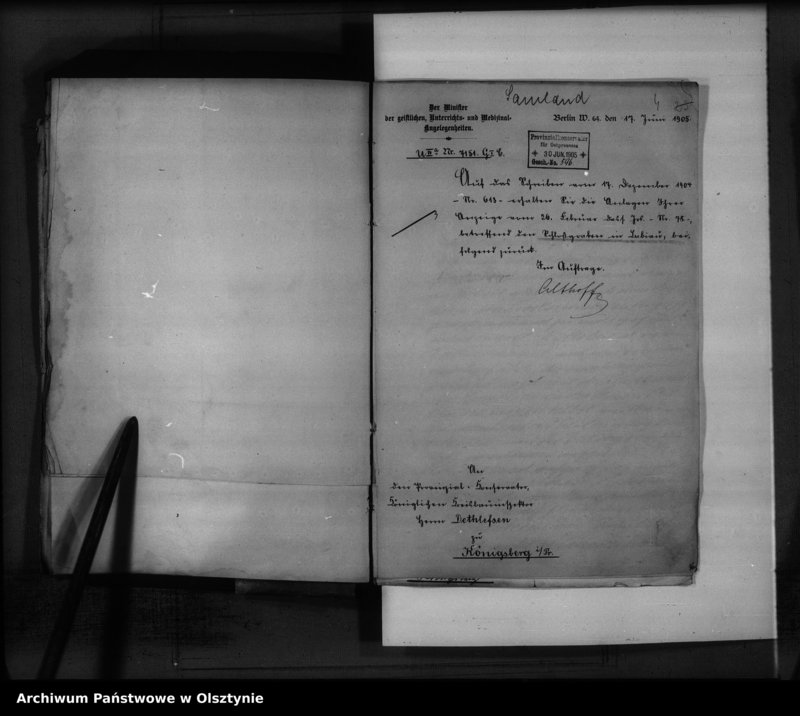 Samland
Der Minister
der geistlichen, Unterrichts- und Medizinal-
Angelegenheiten.
Berlin W. 64. den 17. Juni 1905
U III a Nr. G. I. C.
Provinzialkonservator
für Ostpreussen
30 JUN. 1905
Gesch.-No. 546
Auf das Schreiben vom 17. Dezember 1904
- Nr. 613 - erhalten Sie die Anlagen Ihrer
Anzeige vom 26. Februar dess. Js. - Nr. 98 -,
betreffend den Schloßgraben in Labiau, bei-
folgend zurück.
Im Auftrage.
Althoff
An
den Provinzial-Konservator,
Königlichen Kreisbauinspektor
Herrn Dethlefsen
zu
Königsberg i/Pr.
Archiwum Państwowe w Olsztynie